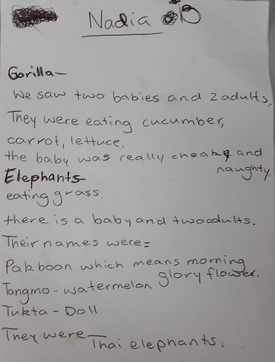 Nadia
Gorilla-
We saw two babies and 2 adults,
They were eating cucumber,
carrot, lettuce.
the baby was really cheaky and
naughty
Elephants
eating grass.
there is a baby and two adults.
Their names were=
Pakboon which means morning
glory flower.
Tongmo - watermelon
Tukta - Doll
They were Thai elephants.